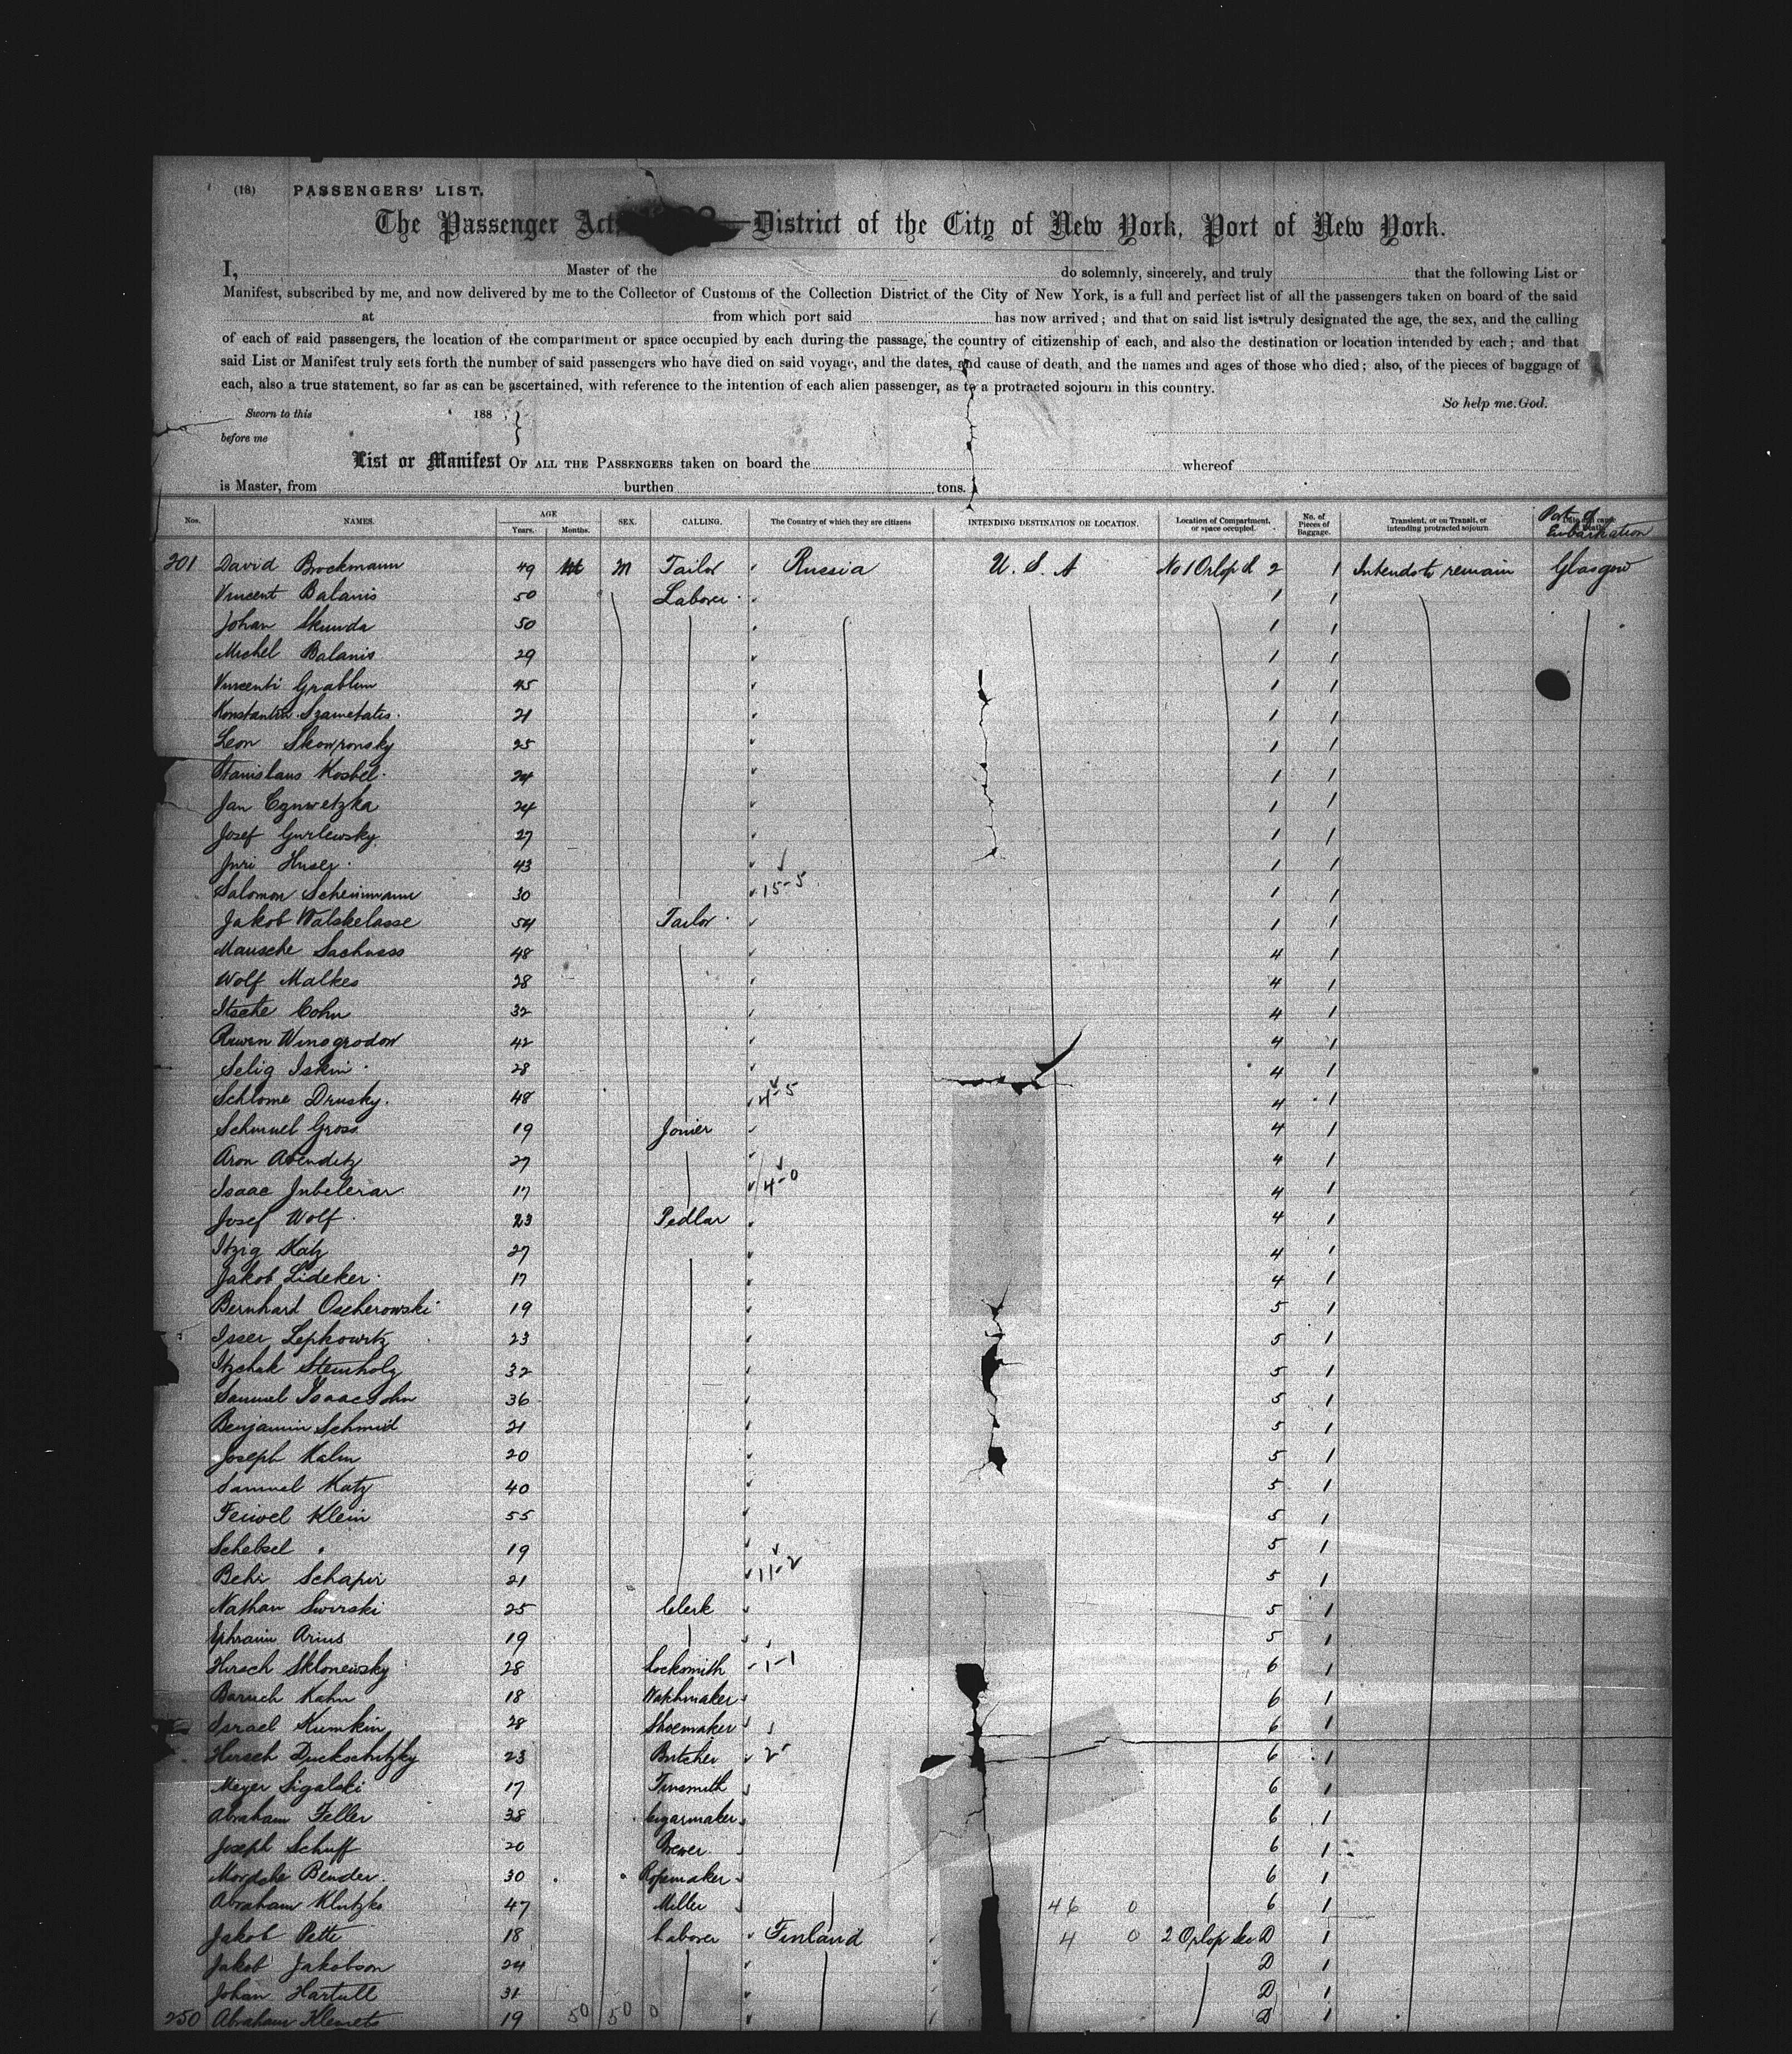 (18) PASSENGERS' LIST.
The Passenger Act, District of the City of New York, Port of New York.
I, Master of the do solemnly, sincerely, and truly that the following List or
Manifest, subscribed by me, and now delivered by me to the Collector of Customs of the Collection District of the City of New York, is a full and perfect list of all the passengers taken on board of the said
at from which port said has now arrived; and that on said list is truly designated the age, the sex, and the calling
of each of said passengers, the location of the compartment or space occupied by each during the passage, the country of citizenship of each, and also the destination or location intended by each; and that
said List or Manifest truly sets forth the number of said passengers who have died on said voyage, and the dates, and cause of death, and the names and ages of those who died; also, of the pieces of baggage of
each, also a true statement, so far as can be ascertained, with reference to the intention of each alien passenger, as to a protracted sojourn in this country.
So help me God.
Sworn to this 188
before me
List or Manifest OF ALL THE PASSENGERS taken on board the whereof
is Master, from burthen tons.
Nos. NAMES. AGE Years. Months. SEX. CALLING. The Country of which they are citizens INTENDING DESTINATION OR LOCATION. Location of Compartment, or space occupied. No. of Pieces of Baggage. Transient, or on Transit, or intending protracted sojourn. Port of Embarkation
201 David Brockmann 49 M Tailor Russia U. S. A No 1 Orlop d 2 1 Intends to remain Glasgow
Vincent Balanis 50 Laborer 1 1
Johan Skunda 50 1 1
Michel Balanis 29 1 1
Vincenti Grablun 45 1 1
Konstantin Szametatis 21 1 1
Leon Skowronsky 25 1 1
Stanislaus Kosbel 24 1 1
Jan 24 1 1
Josef Gurlewsky 27 1 1
Juri Huser 43 1 1
Salomon Scheinmann 30 15-5 1 1
Jakob Walskelasse 54 Tailor 1 1
Mausche Sachness 48 4 1
Wolf Malkes 28 4 1
Itsche Cohn 32 4 1
Ruwen Winogrodow 42 4 1
Selig Iskin 28 4 1
Schlome Drusky 48 4-5 4 1
Schmuel Gross 19 Joiner 4 1
Aron Abenditz 27 4 1
Isaac Jubelerar 17 4-0 4 1
Josef Wolf 23 Pedlar 4 1
Itzig Katz 27 4 1
Jakob Lideker 17 4 1
Bernhard Oscherowski 19 5 1
Isser Lepkowitz 23 5 1
Itzchak Steinholz 32 5 1
Samuel Isaacsohn 36 5 1
Benjamin Schmid 21 5 1
Joseph Kalm 20 5 1
Samuel Katz 40 5 1
Feiwel Klein 55 5 1
Schebsel " 19 5 1
Behr Schapir 21 11-2 5 1
Nathan Swirski 25 Clerk 5 1
Ephraim Arius 19 5 1
Hirsch Sklonewsky 28 Locksmith 1-1 6 1
Baruch Kahn 18 Watchmaker 6 1
Israel Kumkin 28 Shoemaker 6 1
Hirsch Duckschitzky 23 Butcher 2 6 1
Meyer Sigalski 17 Tinsmith 6 1
Abraham Feller 38 Cigarmaker 6 1
Joseph Schuff 20 Brewer 6 1
Mordche Bender 30 Ropemaker 6 1
Abraham Klutzko 47 Miller 46 0 6 1
Jakob Pette 18 Laborer Finland 4 0 2 Orlop Sec D 1
Jakob Jakobson 24 D 1
Johan Hartull 31 D 1
250 Abraham Klemets 19 50 50 0 D 1